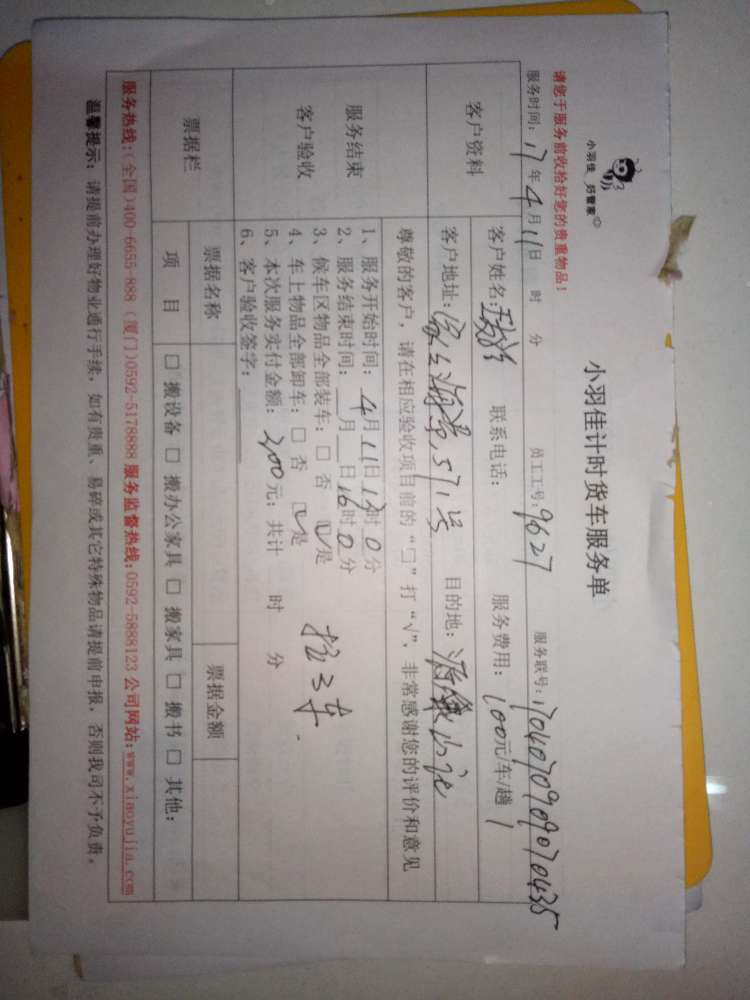 小羽佳 好管家
小羽佳计时货车服务单
请您于服务前收拾好您的贵重物品!
服务时间: 17年4月11日 时 分 员工工号: 9627 服务联号: 170407090970435
客户资料
客户姓名: 联系电话: 服务费用: 100元/车/趟
客户地址: 海景571号 目的地:
尊敬的客户,请在相应验收项目前的“□”打“√”,非常感谢您的评价和意见
服务结束
客户验收
1、服务开始时间: 4月11日 时0分
2、服务结束时间: 月 日16时0分
3、候车区物品全部装车: □ 否 ☑是
4、车上物品全部卸车: □ 否 ☑是
5、本次服务实付金额: 300元; 共计 时 分
6、客户验收签字:
票据栏
票据名称 票据金额
项 目 □ 搬设备 □ 搬办公家具 □ 搬家具 □ 搬书 □ 其他:
服务热线:(全国)400-6655-888 (厦门)0592-5178888 服务监督热线:0592-5888123 公司网站:www.xiaoyujia.com
温馨提示: 请提前办理好物业通行手续,如有贵重、易碎或其它特殊物品请提前申报,否则我司不予负责。